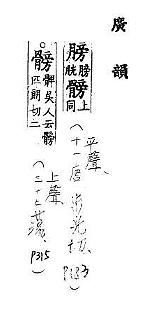 廣韻
髈膀上
胱同
平聲、
(十一唐 步光切. P183)
○髈髀吳人云髈
匹朗切二
(上聲、
三十七蕩、P315)